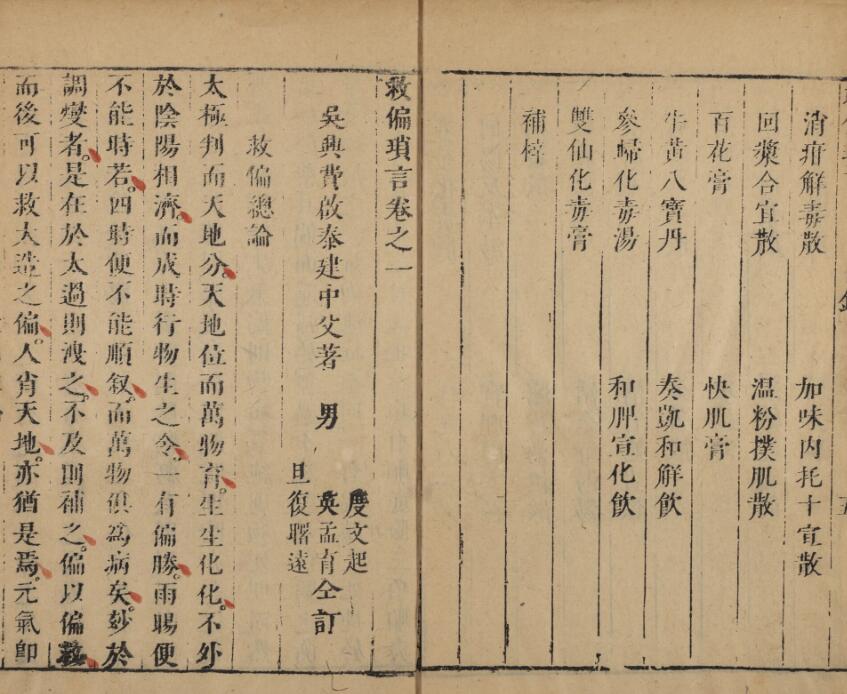 消疳解毒散 加味內托十宣散
回漿合宜散 温粉撲肌散
百花膏 快肌膏
牛黃八寶丹 奏凱和解飲
參歸化毒湯 和脾宣化飲
雙仙化毒膏
補梓
救偏瑣言卷之一
吳興費啟泰建中父著 男
慶文起
英孟育仝訂
旦復曙遠
救偏總論
太極判而天地分。天地位而萬物育。生生化化。不外
於陰陽相濟。而成時行物生之令。一有偏勝。雨暘便
不能時若。四時便不能順叙。而萬物俱為病矣。妙於
調變者。是在於太過則洩之。不及則補之。偏以偏救
而後可以救大造之偏。人肖天地。亦猶是焉。元氣卽